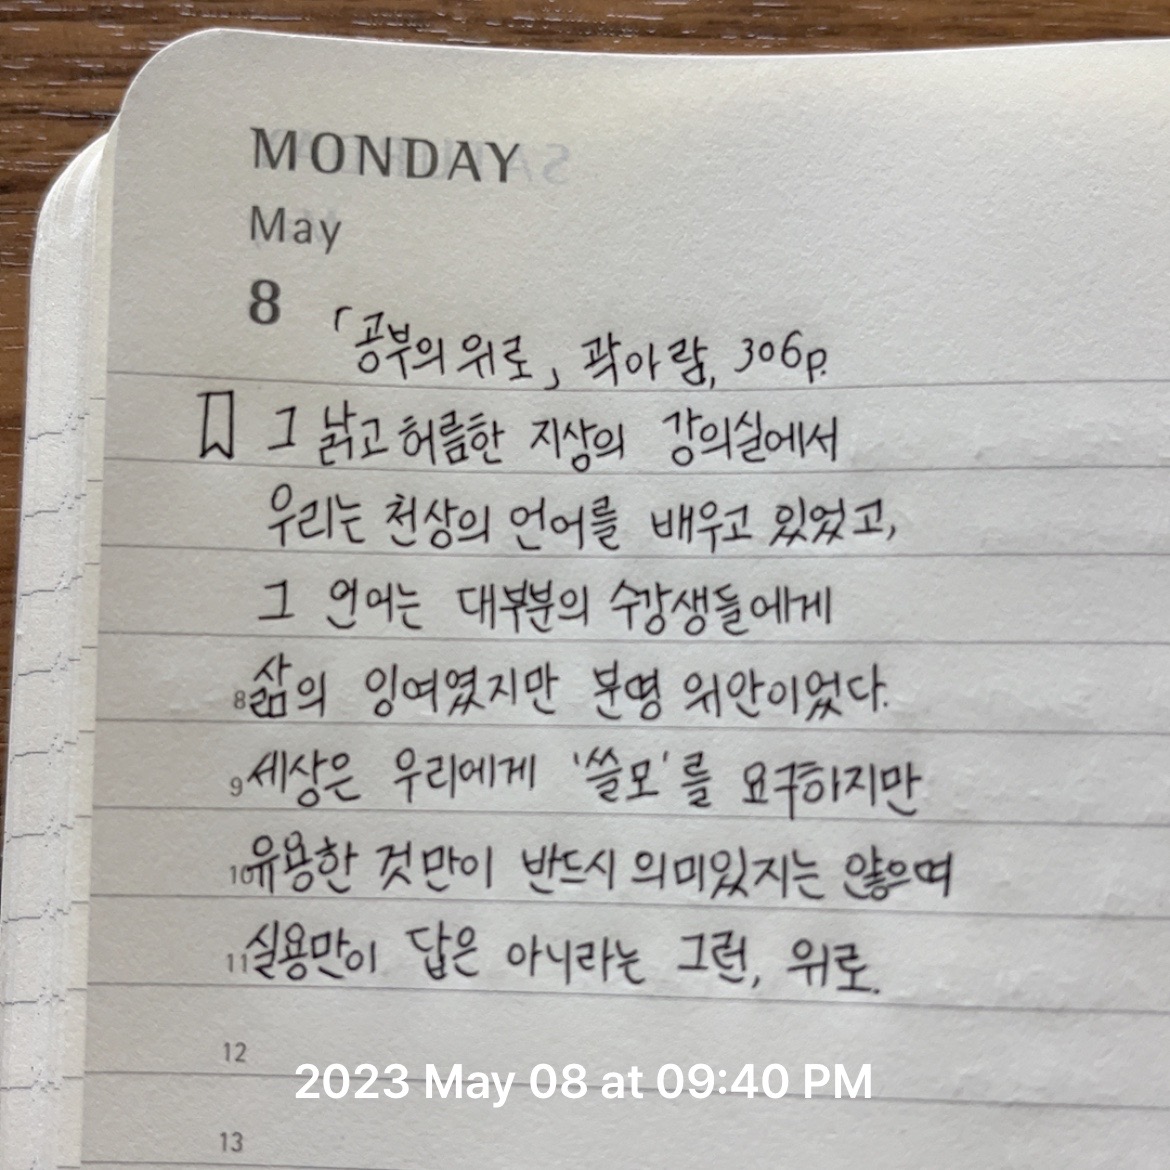 MONDAY
May
8
「공부의 위로」, 곽아람, 306p.
그 낡고 허름한 지상의 강의실에서
우리는 천상의 언어를 배우고 있었고,
그 언어는 대부분의 수강생들에게
8 삶의 잉여였지만 분명 위안이었다.
9 세상은 우리에게 '쓸모'를 요구하지만
10 유용한 것만이 반드시 의미있지는 않으며
11 실용만이 답은 아니라는 그런, 위로.
12
2023 May 08 at 09:40 PM
13